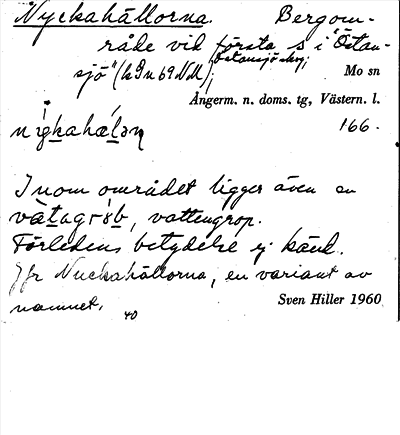 Nyckahällorna. Bergom-
råde vid första s i "Östan-
Östansjö skog;
sjö" (kSn 69 NM); Mo sn
Ångerm. n. doms. tg, Västern. l.
166.
Inom området ligger även en
vattengrop.
Förledens betydelse ej känd.
Jfr Nuckahällorna, en variant av
namnet.
40
Sven Hiller 1960